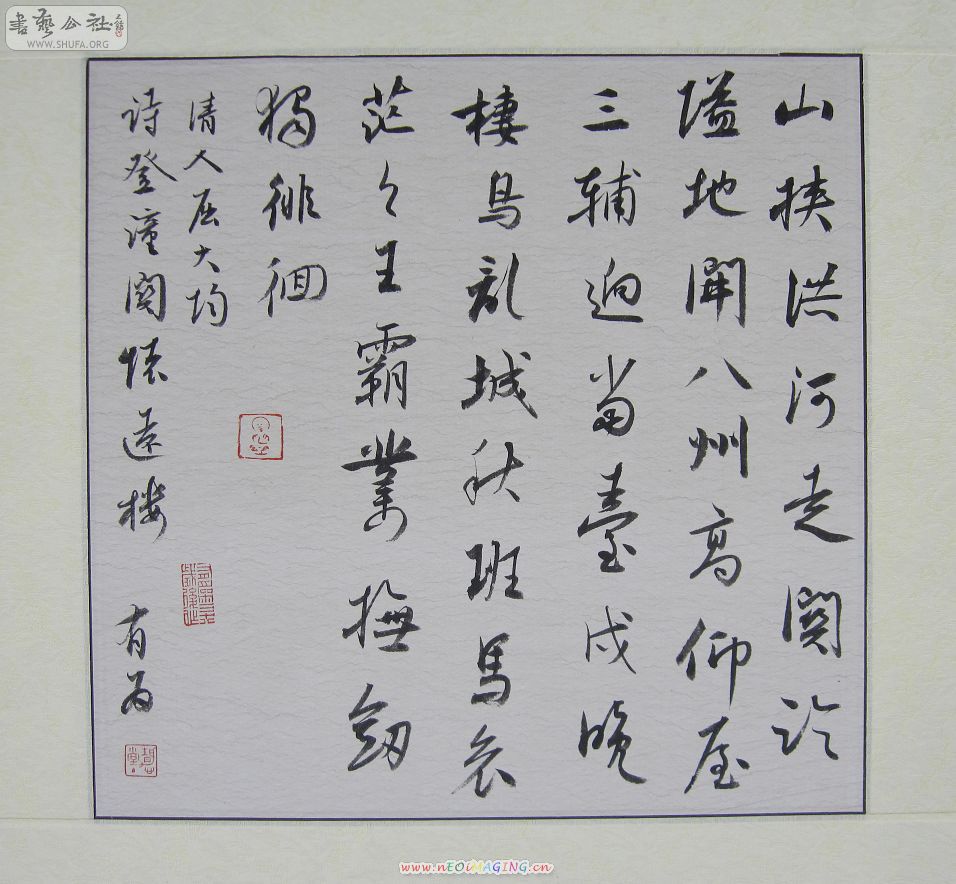 书艺公社
WWW.SHUFA.ORG
山挟洪河走関临
隘地開八州高仰屋
三辅迥当臺戍晚
棲烏乱城秋班馬哀
茫々王霸業撫劒
獨徘徊
清人屈大均
诗登潼関懐遠楼 有为
www.nEOiMAGING.cn